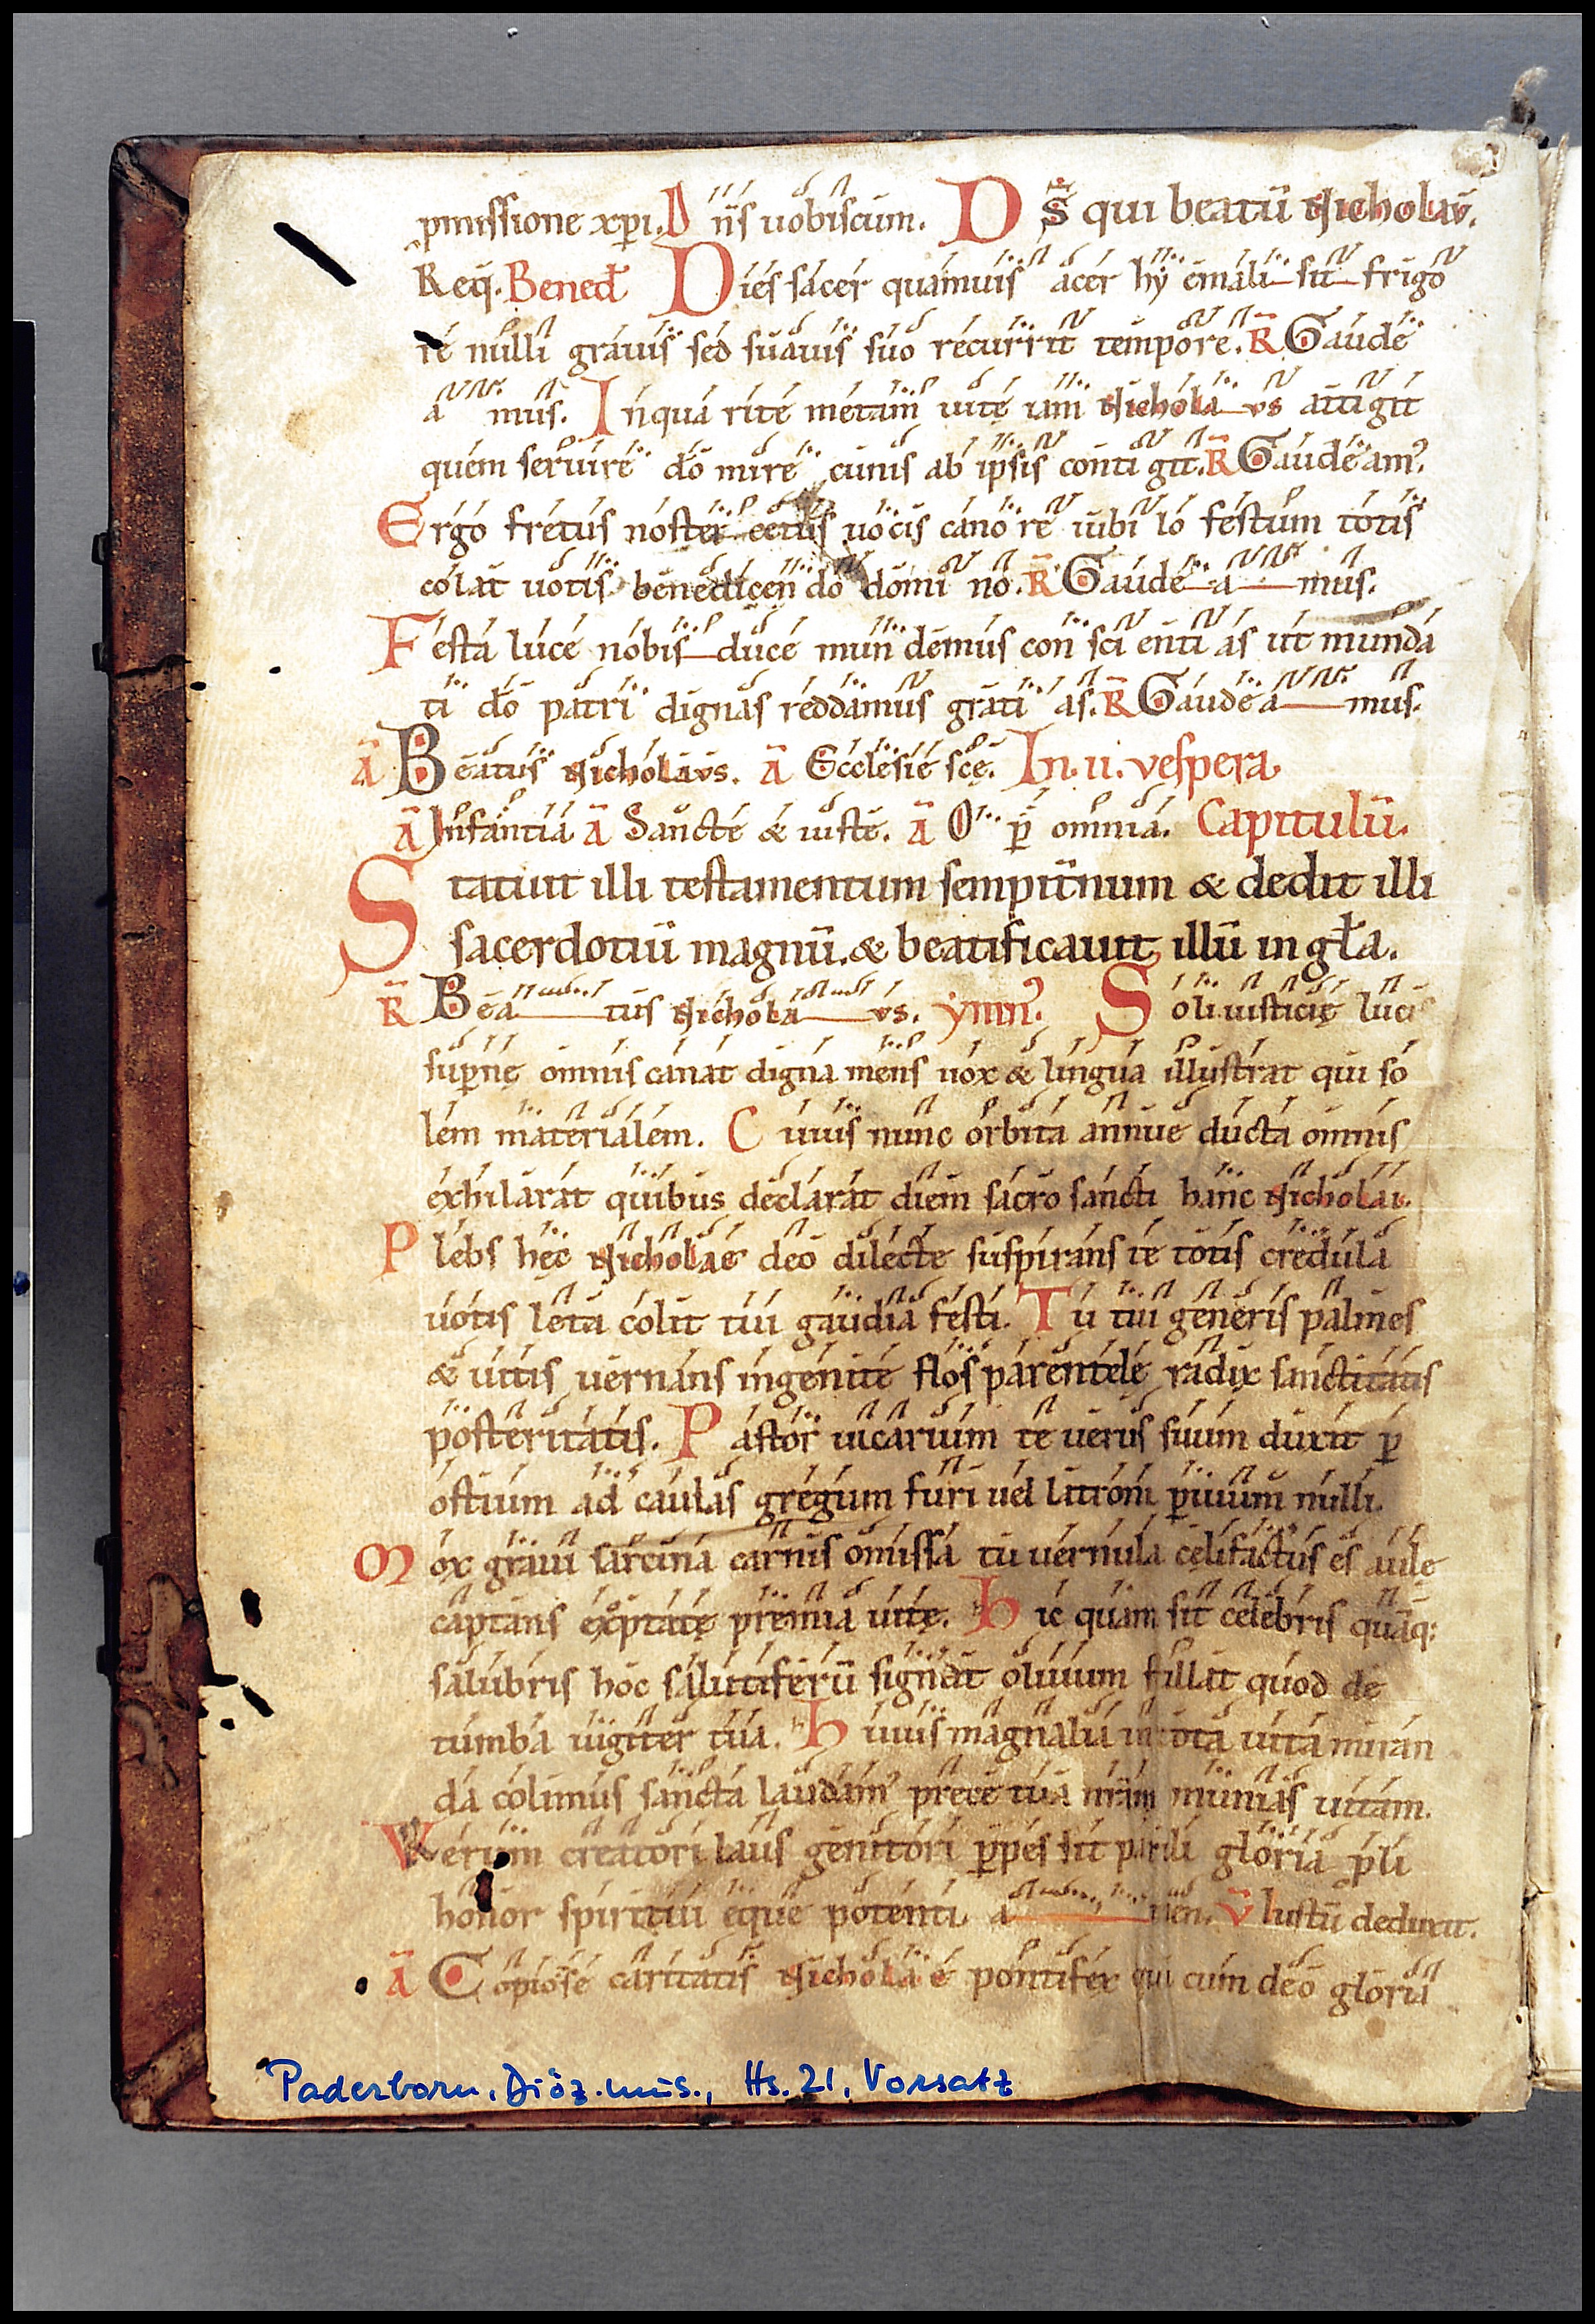 pmissione xp̄i. D n̄s uobiscum. D s̄ qui beatū Nicholaū.
Req̄. Bened̄ Dies sacer quamuis acer hyemali sit frigo
re nulli grauis sed suauis suo recurrit tempore. R̄ Gaude
a mus. Inqua rite metam uitę iam Nichola us attigit
quem seruire dō mire cunis ab ipsis conti git. R̄ Gaudeam᾽.
Ergo fretus noster cetus uocis canore iubilo festum totis
colat uotis benedicendo domi no. R̄ Gaude a mus.
Festa luce nobis duce mundemus conscienti as ut munda
ti dō patri dignas reddamus grati as. R̄ Gaudea mus.
Ā Beatus Nicholaus. Ā Ecclesie scę. In. ii. vespera
Ā Infantia Ā Sancte & iuste. Ā O p̄ omnia. Capitulū.
Statuit illi testamentum sempit̄num & dedit illi
sacerdotiū magnū. & beatificauit illū in gl̄a.
R̄ Bea tus Nichola us. ymn᾽. Soli iusticię luci
sup̄nę omnis canat digna mens uox & lingua illustrat qui so
lem materialem. Cuius nunc orbita annue ducta omnis
exhilarat quibus declarat diem sacro sancti hanc Nicholai.
Plebs hęc Nicholae deo dilecte suspirans te totis credula
uotis leta colit tui gaudia festi. Tu tui generis palmes
& uitis uernans ingenite flos parentelę radix sanctitatis
posteritatis. Pastor uicarium te uerus suum duxit p̄
ostium ad caulas gregum furi uel latroni p̄uium nulli.
Mox graui sarcina carnis omissa tu uernula cęli factus es aule
captans exoptatę premia uitę. Hic quam sit celebris quāq:
salubris hoc salutiferū signat oliuum stillat quod de
tumba iugiter tua. Huius magnalia in tota uita miran
da colimus sancta laudam᾽ prece tua nr̄am munias uitam.
Verum creatori laus genitori p̄pes sit parili gloria p̄li
honor spiritui eque potenti a men. V̄ Iustū deduxit.
Ā Copiose caritatis Nicholae pontifex qui cum deo gloria
Paderborn, Diöz.mus., Hs. 21, Vorsatz